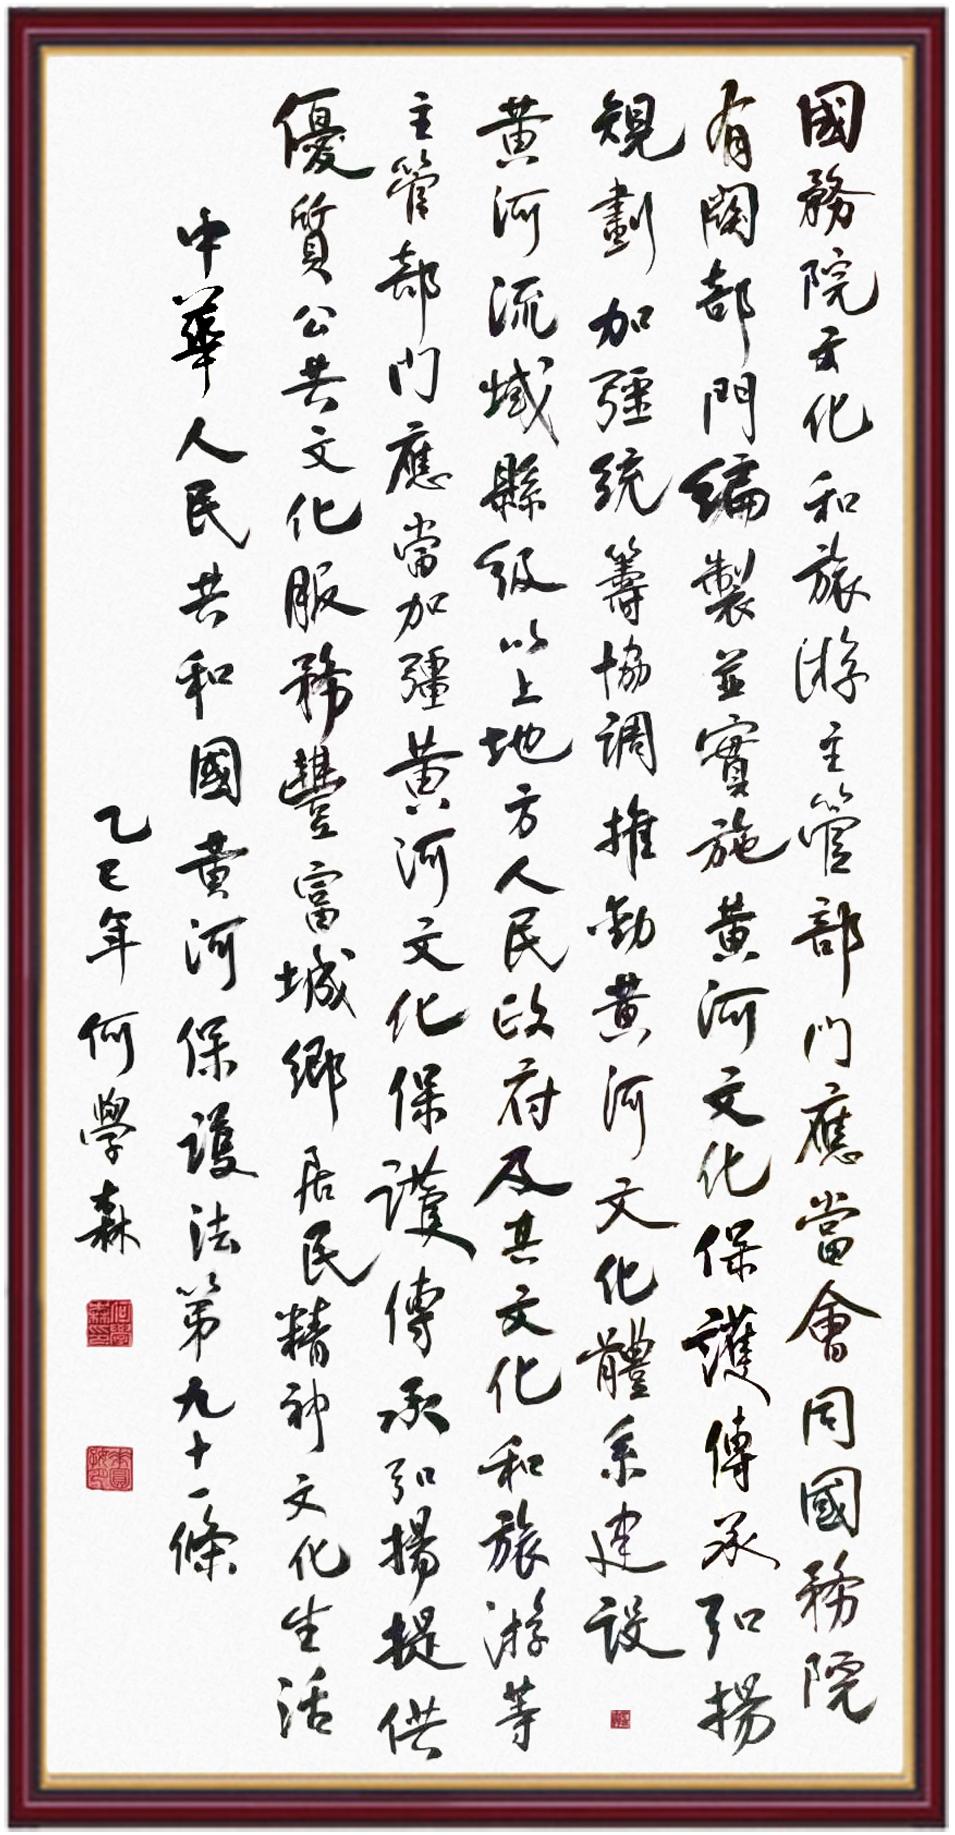 國務院文化和旅游主管部門應當會同國務院
有關部門編製並實施黃河文化保護傳承弘揚
規劃加彊統籌協調推動黃河文化體系建設
黃河流域縣級以上地方人民政府及其文化和旅游等
主管部門應當加彊黃河文化保護傳承弘揚提供
優質公共文化服務豐富城鄉居民精神文化生活
中華人民共和國黃河保護法第九十一條
乙巳年何學森